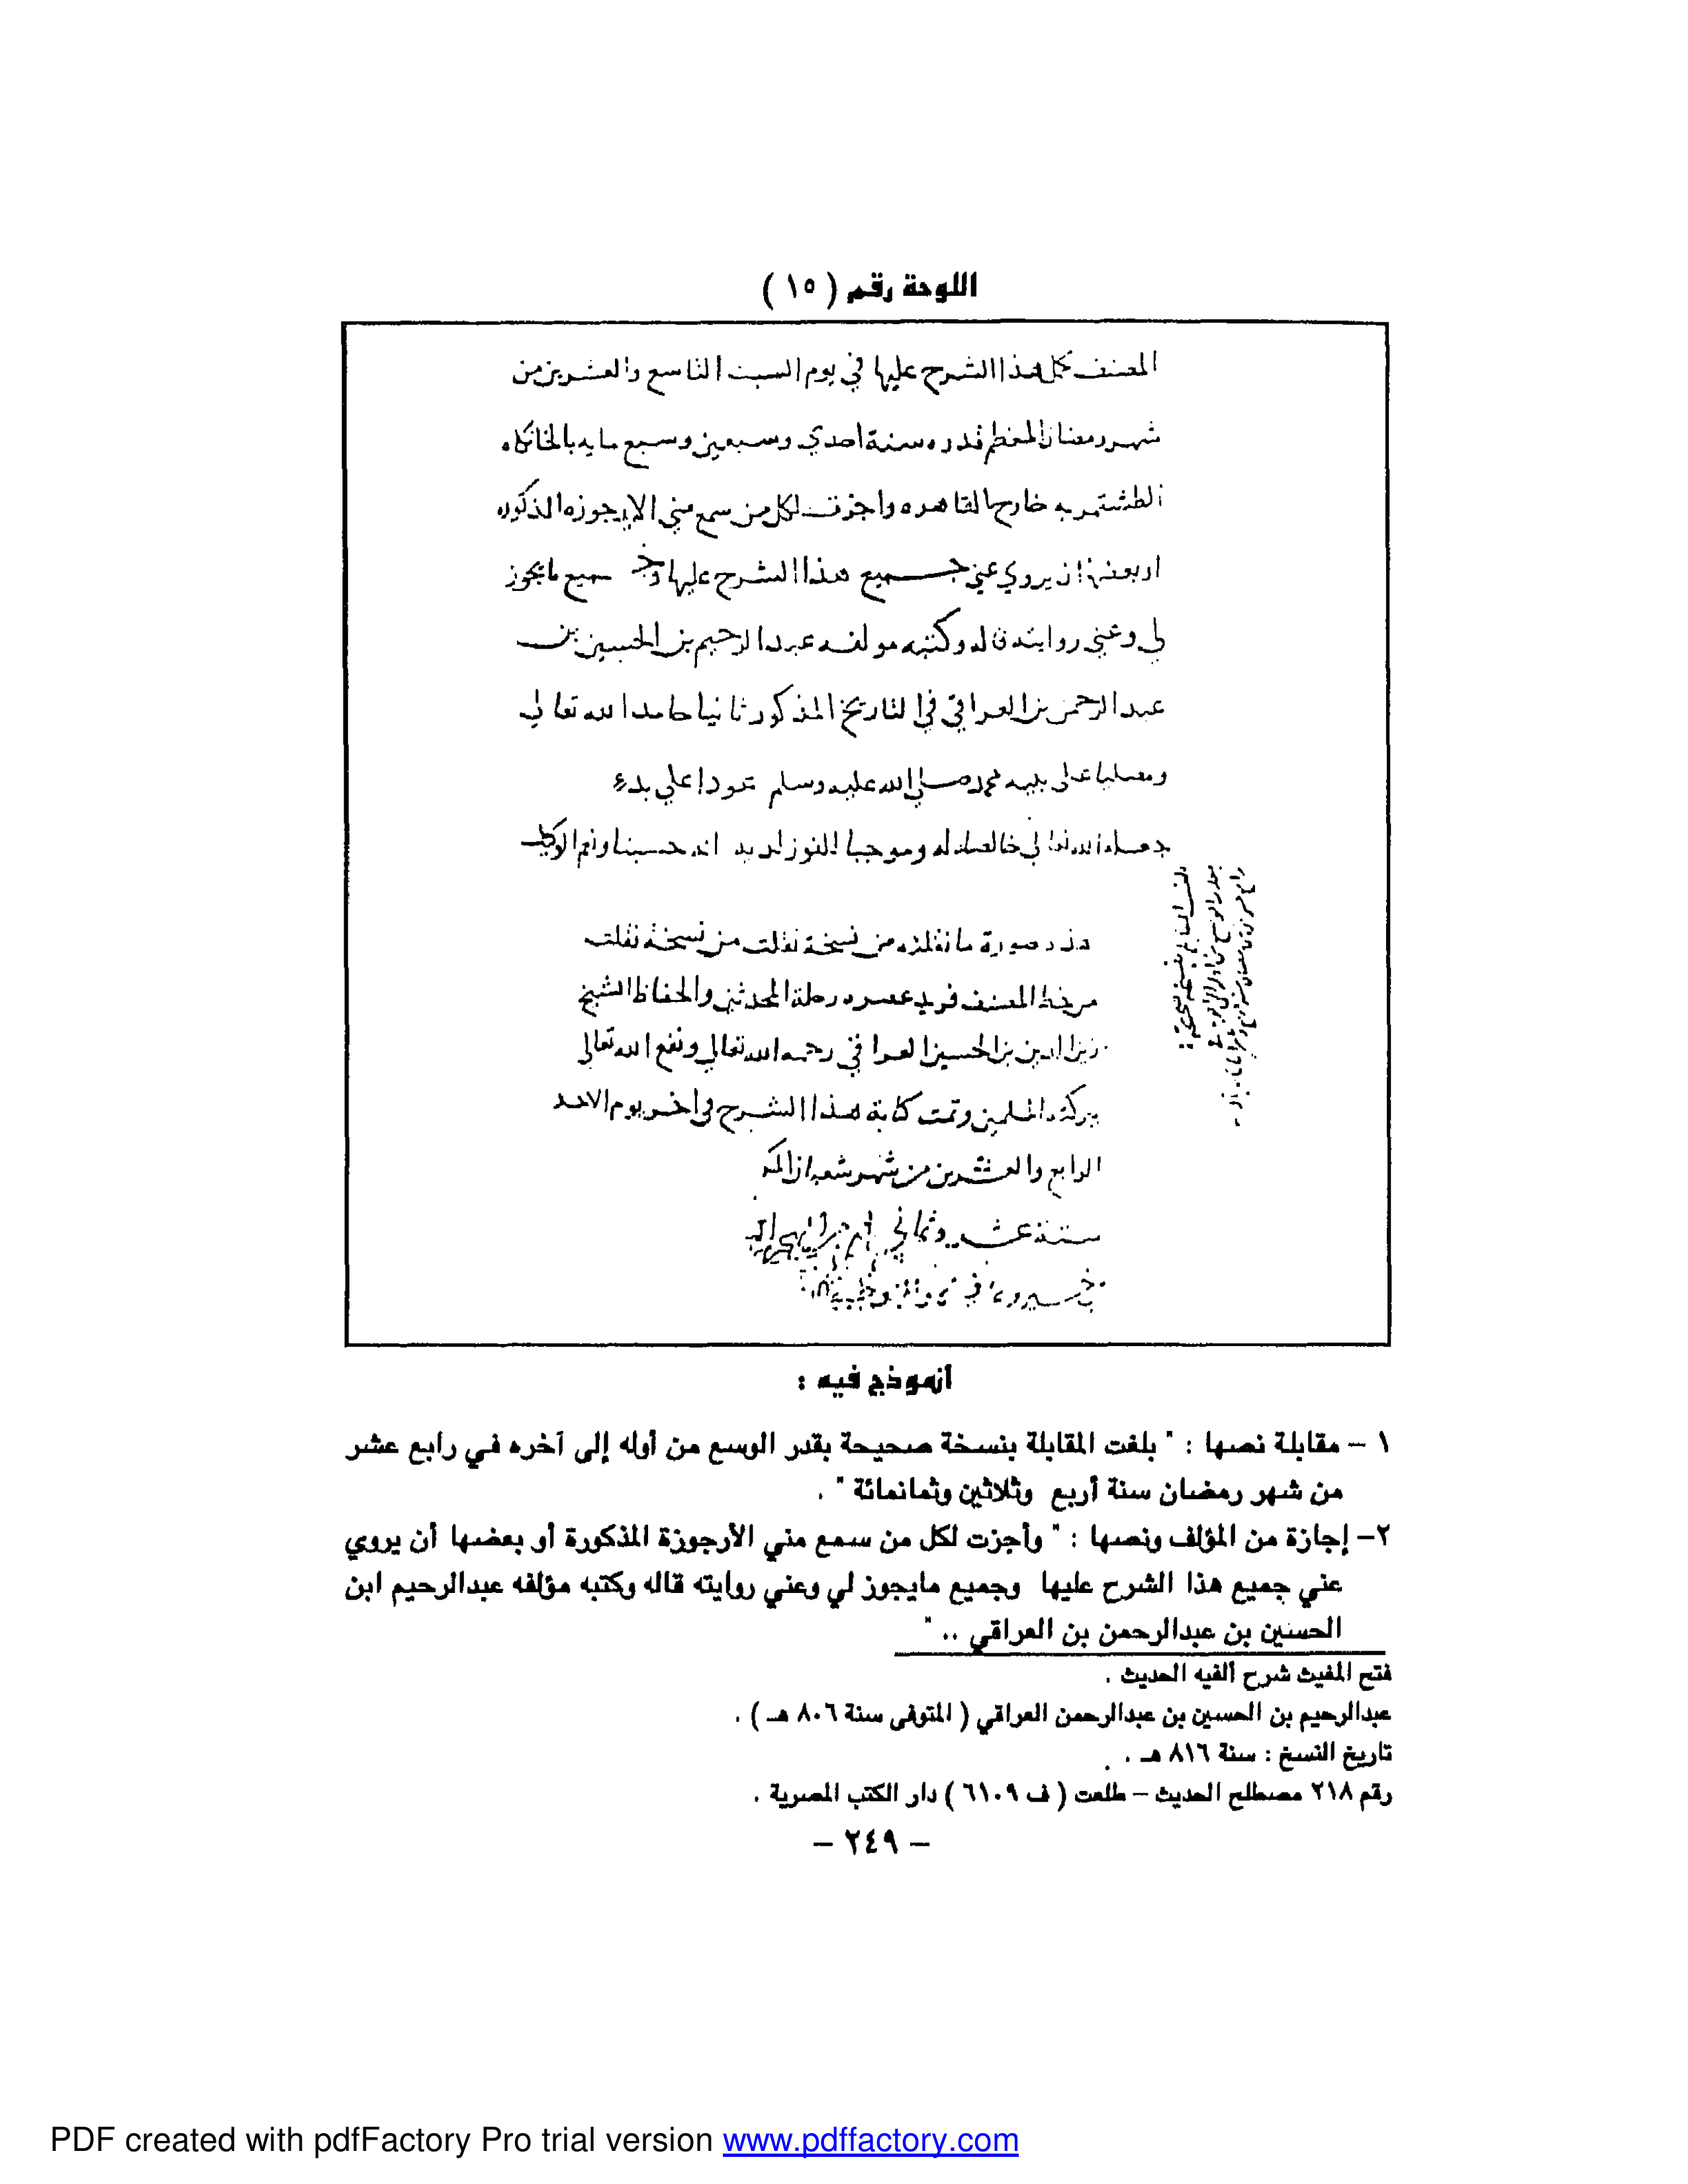 اللوحة رقم ( ١٥ )
المصنف كمل هذا الشرح عليها في يوم السبت التاسع والعشرين من
شهر رمضان المعظم قدره سنة احدي وسبعين وسبع مايه بالخانكاه
الطشتمريه خارج القاهره واجزت لكل من سمع مني الارجوزه المذكوره
او بعضها ان يروي عني جميع هذا الشرح عليها وجميع ما يجوز
لي وعني روايته قاله وكتبه مولفه عبد الرحيم بن الحسين بن
عبد الرحمن بن العراقي في التاريخ المذكور ثانيا حامدا لله تعالي
ومصليا على نبيه محمد صلى الله عليه وسلم عودا علي بدء
جعله الله تعالي خالصا له وموجبا للفوز لديه انه حسبنا ونعم الوكيل
بلغت المقابلة بنسخة صحيحة
بقدر الوسع من اوله الى اخره في
رابع عشر من شهر رمضان سنة اربع وثلاثين
هذه صورة ما نقلته من نسخة نقلت من نسخة نقلت
من خط المصنف فريد عصره رحلة المحدثين والحفاظ الشيخ
زين الدين بن الحسين العراقي رحمه الله تعالي ونفع الله تعالى
ببركته المسلمين وتمت كتابة هذا الشرح في اخر يوم الاحد
الرابع والعشرين من شهر شعبان
ستة عشر وثماني
أنموذج فيه :
١ – مقابلة نصها : " بلغت المقابلة بنسخة صحيحة بقدر الوسع من أوله إلى آخره في رابع عشر
من شهر رمضان سنة أربع وثلاثين وثمانمائة " .
٢– إجازة من المؤلف ونصها : " وأجزت لكل من سمع مني الأرجوزة المذكورة أو بعضها أن يروي
عني جميع هذا الشرح عليها وجميع مايجوز لي وعني روايته قاله وكتبه مؤلفه عبدالرحيم ابن
الحسين بن عبدالرحمن بن العراقي .. "
فتح المغيث شرح ألفيه الحديث .
عبدالرحيم بن الحسين بن عبدالرحمن العراقي ( المتوفى سنة ٨٠٦ هـ ) .
تاريخ النسخ : سنة ٨١٦ هـ .
رقم ٢١٨ مصطلح الحديث – طلعت ( ف ٦١٠٩ ) دار الكتب المصرية .
– ٢٤٩ –
PDF created with pdfFactory Pro trial version www.pdffactory.com